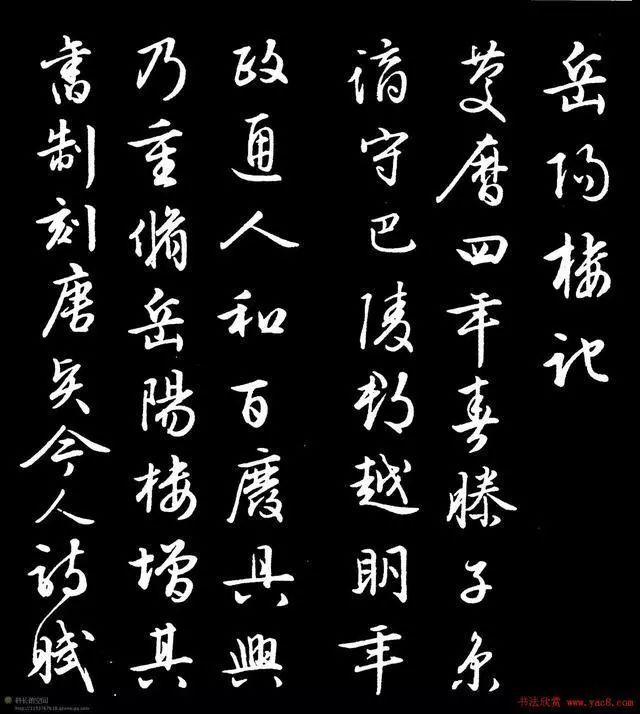 岳阳楼记
慶曆四年春滕子京
谪守巴陵郡越明年
政通人和百廢具興
乃重脩岳陽楼增其
舊制刻唐贤今人詩賦
书法欣赏 www.yac8.com